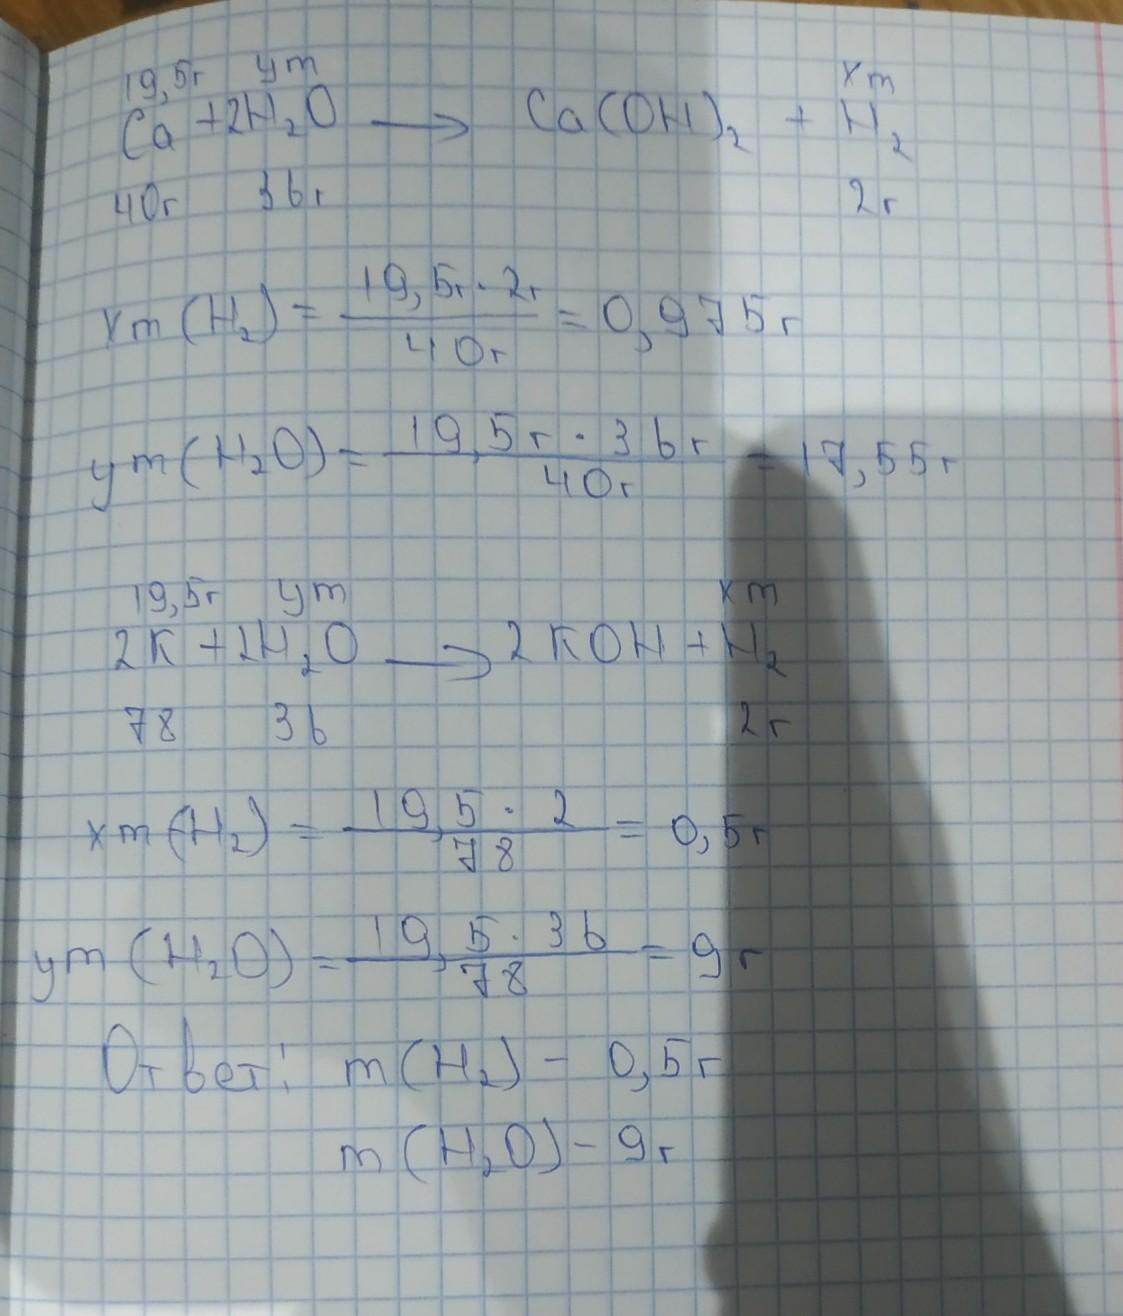 19,5г ym xm
Ca + 2H₂O → Ca(OH)₂ + H₂
40г 36г 2г
xm(H₂) = 19,5г · 2г / 40г = 0,975г
ym(H₂O) = 19,5г · 36г / 40г = 17,55г
19,5г ym xm
2K + 2H₂O → 2KOH + H₂
78 36 2г
xm(H₂) = 19,5 · 2 / 78 = 0,5г
ym(H₂O) = 19,5 · 36 / 78 = 9г
Ответ: m(H₂) – 0,5г
m(H₂O) – 9г